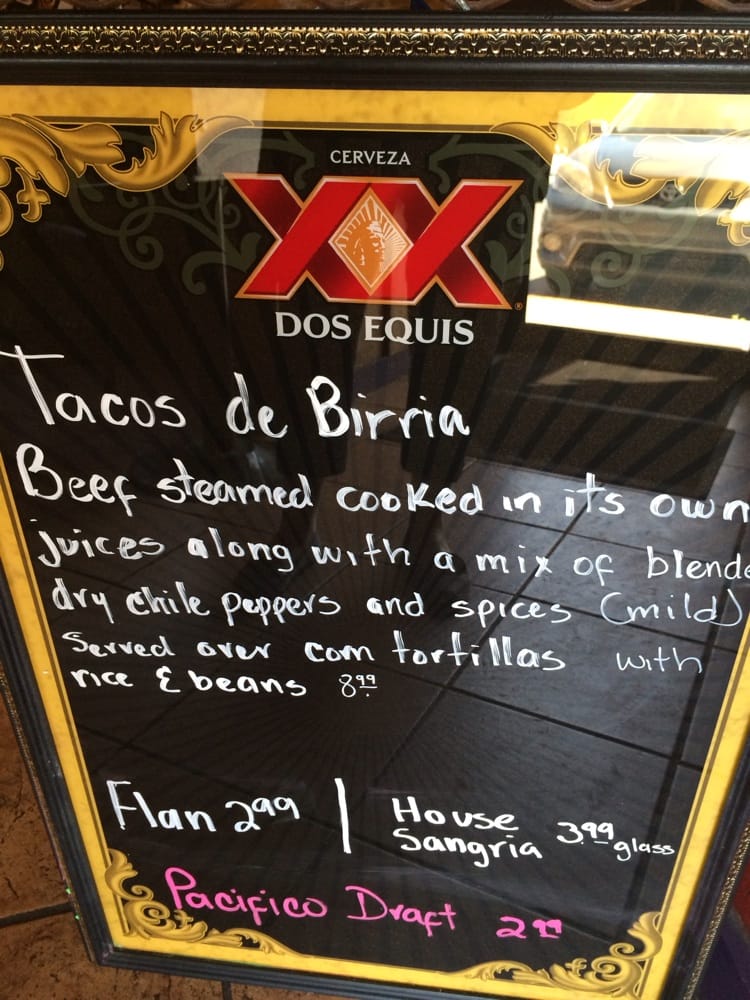 CERVEZA
XX
DOS EQUIS
Tacos de Birria
Beef steamed cooked in its own
juices along with a mix of blende
dry chile peppers and spices (mild)
Served over corn tortillas with
rice & beans 8.99
Flan 2.99 | House Sangria 3.99 glass
Pacifico Draft 2.99